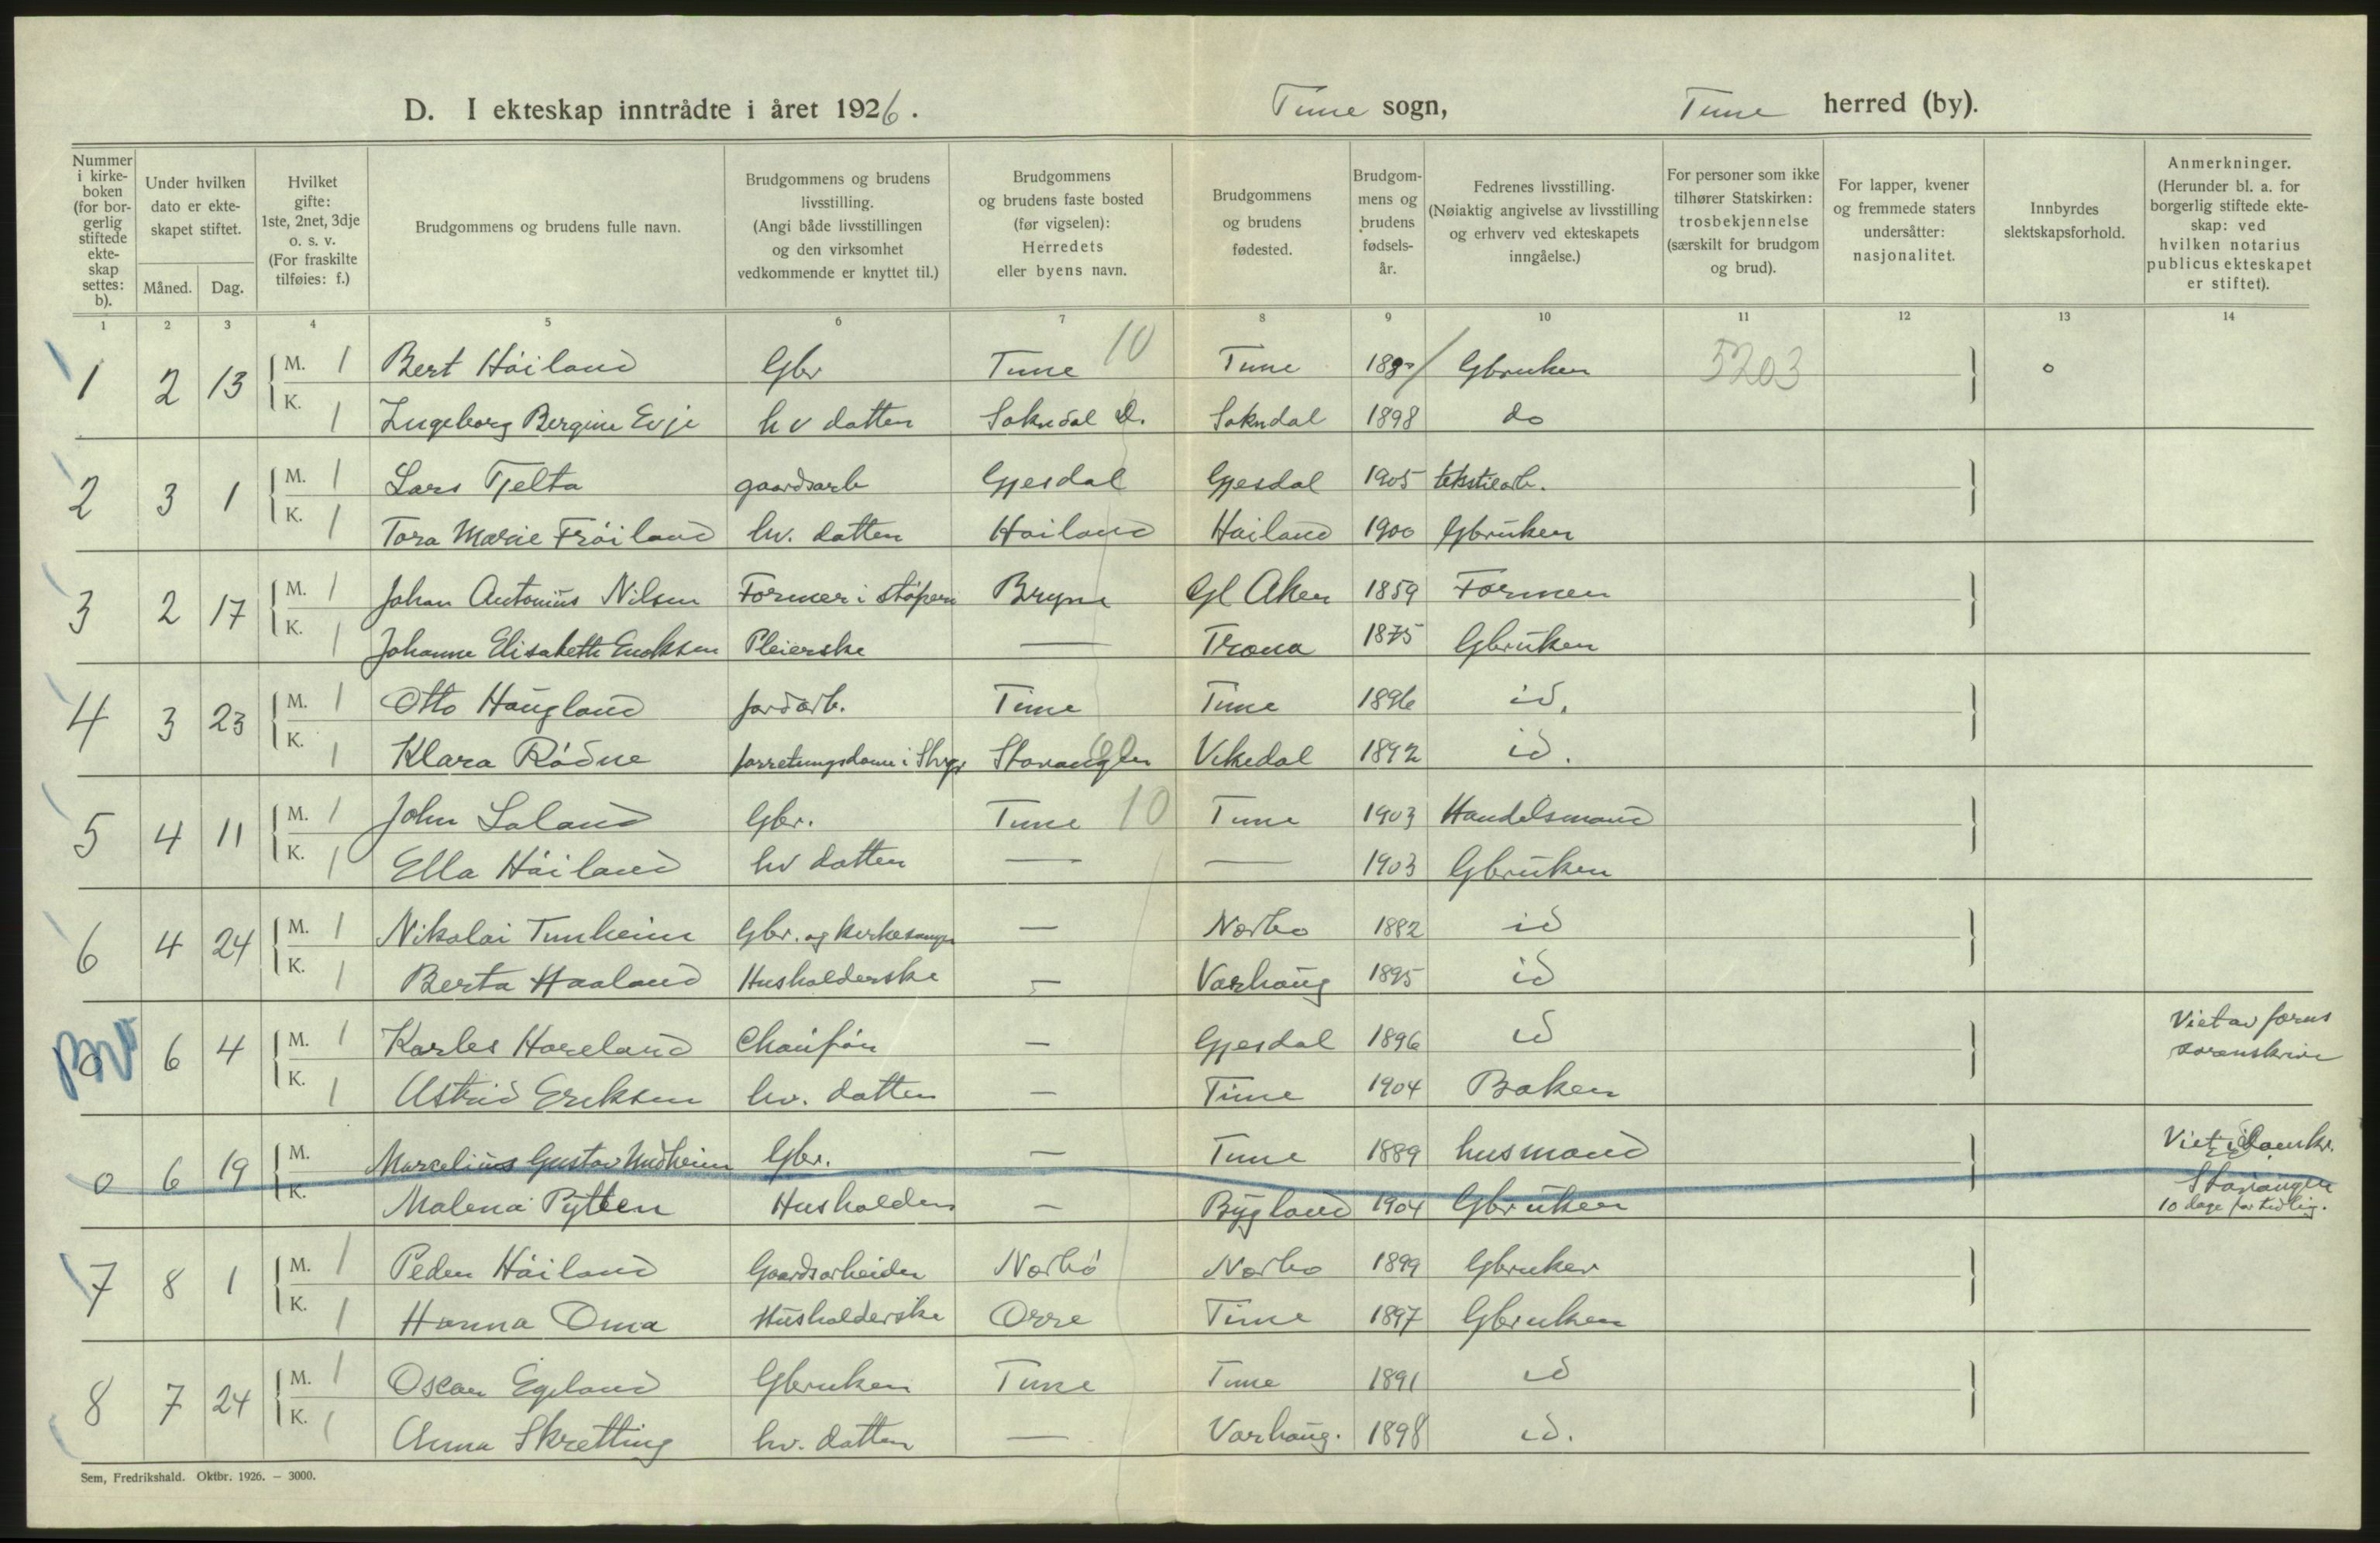 D. I ekteskap inntrådte i året 1926. Time sogn, Time herred (by).
Nummer i kirkeboken (for borgerlig stiftede ekteskap settes: b).
Under hvilken dato er ekteskapet stiftet.
Måned. Dag.
Hvilket gifte: 1ste, 2net, 3dje o. s. v. (For fraskilte tilføies: f.)
Brudgommens og brudens fulle navn.
Brudgommens og brudens livsstilling. (Angi både livsstillingen og den virksomhet vedkommende er knyttet til.)
Brudgommens og brudens faste bosted (før vigselen): Herredets eller byens navn.
Brudgommens og brudens fødested.
Brudgommens og brudens fødselsår.
Fedrenes livsstilling. (Nøiaktig angivelse av livsstilling og erhverv ved ekteskapets inngåelse.)
For personer som ikke tilhører Statskirken: trosbekjennelse (særskilt for brudgom og brud).
For lapper, kvener og fremmede staters undersåtter: nasjonalitet.
Innbyrdes slektskapsforhold.
Anmerkninger. (Herunder bl. a. for borgerlig stiftede ekteskap: ved hvilken notarius publicus ekteskapet er stiftet).
1 2 3 4 5 6 7 8 9 10 11 12 13 14
1 2 13 M. 1 Bert Höiland Gbr Time 10 Time Gbruker 5203 o
K. 1 Ingeborg Bergine Evje hv datter Sokndal D. Sokndal 1898 do
2 3 1 M. 1 Lars Tjelta gaardsarb Gjesdal Gjesdal 1905 tekstilarb.
K. 1 Tora Marie Fröiland hv. datter Höiland Höiland 1900 Gbruker
3 2 17 M. 1 Johan Antonius Nilsen Former i støperi Bryne Gl Aker 1859 Former
K. 1 Johanne Elisabeth Enoksen Pleierske — Tromö 1875 Gbruker
4 3 23 M. 1 Otto Haugland jordarb. Time Time 1896 id.
K. 1 Klara Rödne forretningsdame i Stvgr Stavanger Vikedal 1892 id.
5 4 11 M. 1 John Laland Gbr. Time 10 Time 1903 Handelsmand
K. 1 Ella Höiland hv datter — — 1903 Gbruker
6 4 24 M. 1 Nikolai Tunheim Gbr. og kirkesanger — Nærbo 1882 id
K. 1 Berta Haaland Husholderske — Varhaug 1895 id
6 4 M. 1 Karles Horeland Chauför — Gjesdal 1896 id Viet av
K. 1 Astrid Eriksen hv. datter — Time 1904 Baker sorenskriver
0 6 19 M. Marcelius Gustav Undheim Gbr. — Time 1889 husmand Viet i Domk.
K. Malena Pytten Husholder — Bygland 1904 Gbruker Stavanger
10 dage for tidlig.
7 8 1 M. 1 Peder Höiland Gaardsarbeider Nærbö Nærbo 1899 Gbruker
K. 1 Hanna Oma Husholderske Orre Time 1897 Gbruker
8 7 24 M. 1 Oscar Egeland Gbruker Time Time 1891 id
K. 1 Anna Skretting hv. datter — Varhaug. 1898 id.
Sem, Fredrikshald. Oktbr. 1926. — 3000.